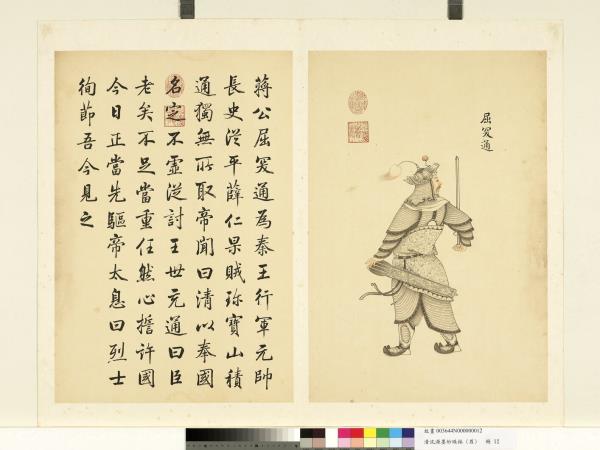 屈突通
蔣公屈突通為秦王行軍元帥
長史從平薛仁杲賊珍寶山積
通獨無所取帝聞曰清以奉國
名定不虛從討王世充通曰臣
老矣不足當重任然心誓許國
今日正當先驅帝太息曰烈士
徇節吾今見之
故畫003644N000000012